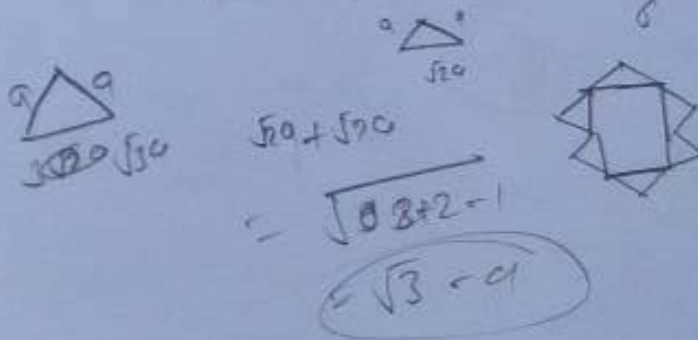 6
a
√2a
a a
√3a
√2a + √2a
= √ 3+2-1
= √3 - a